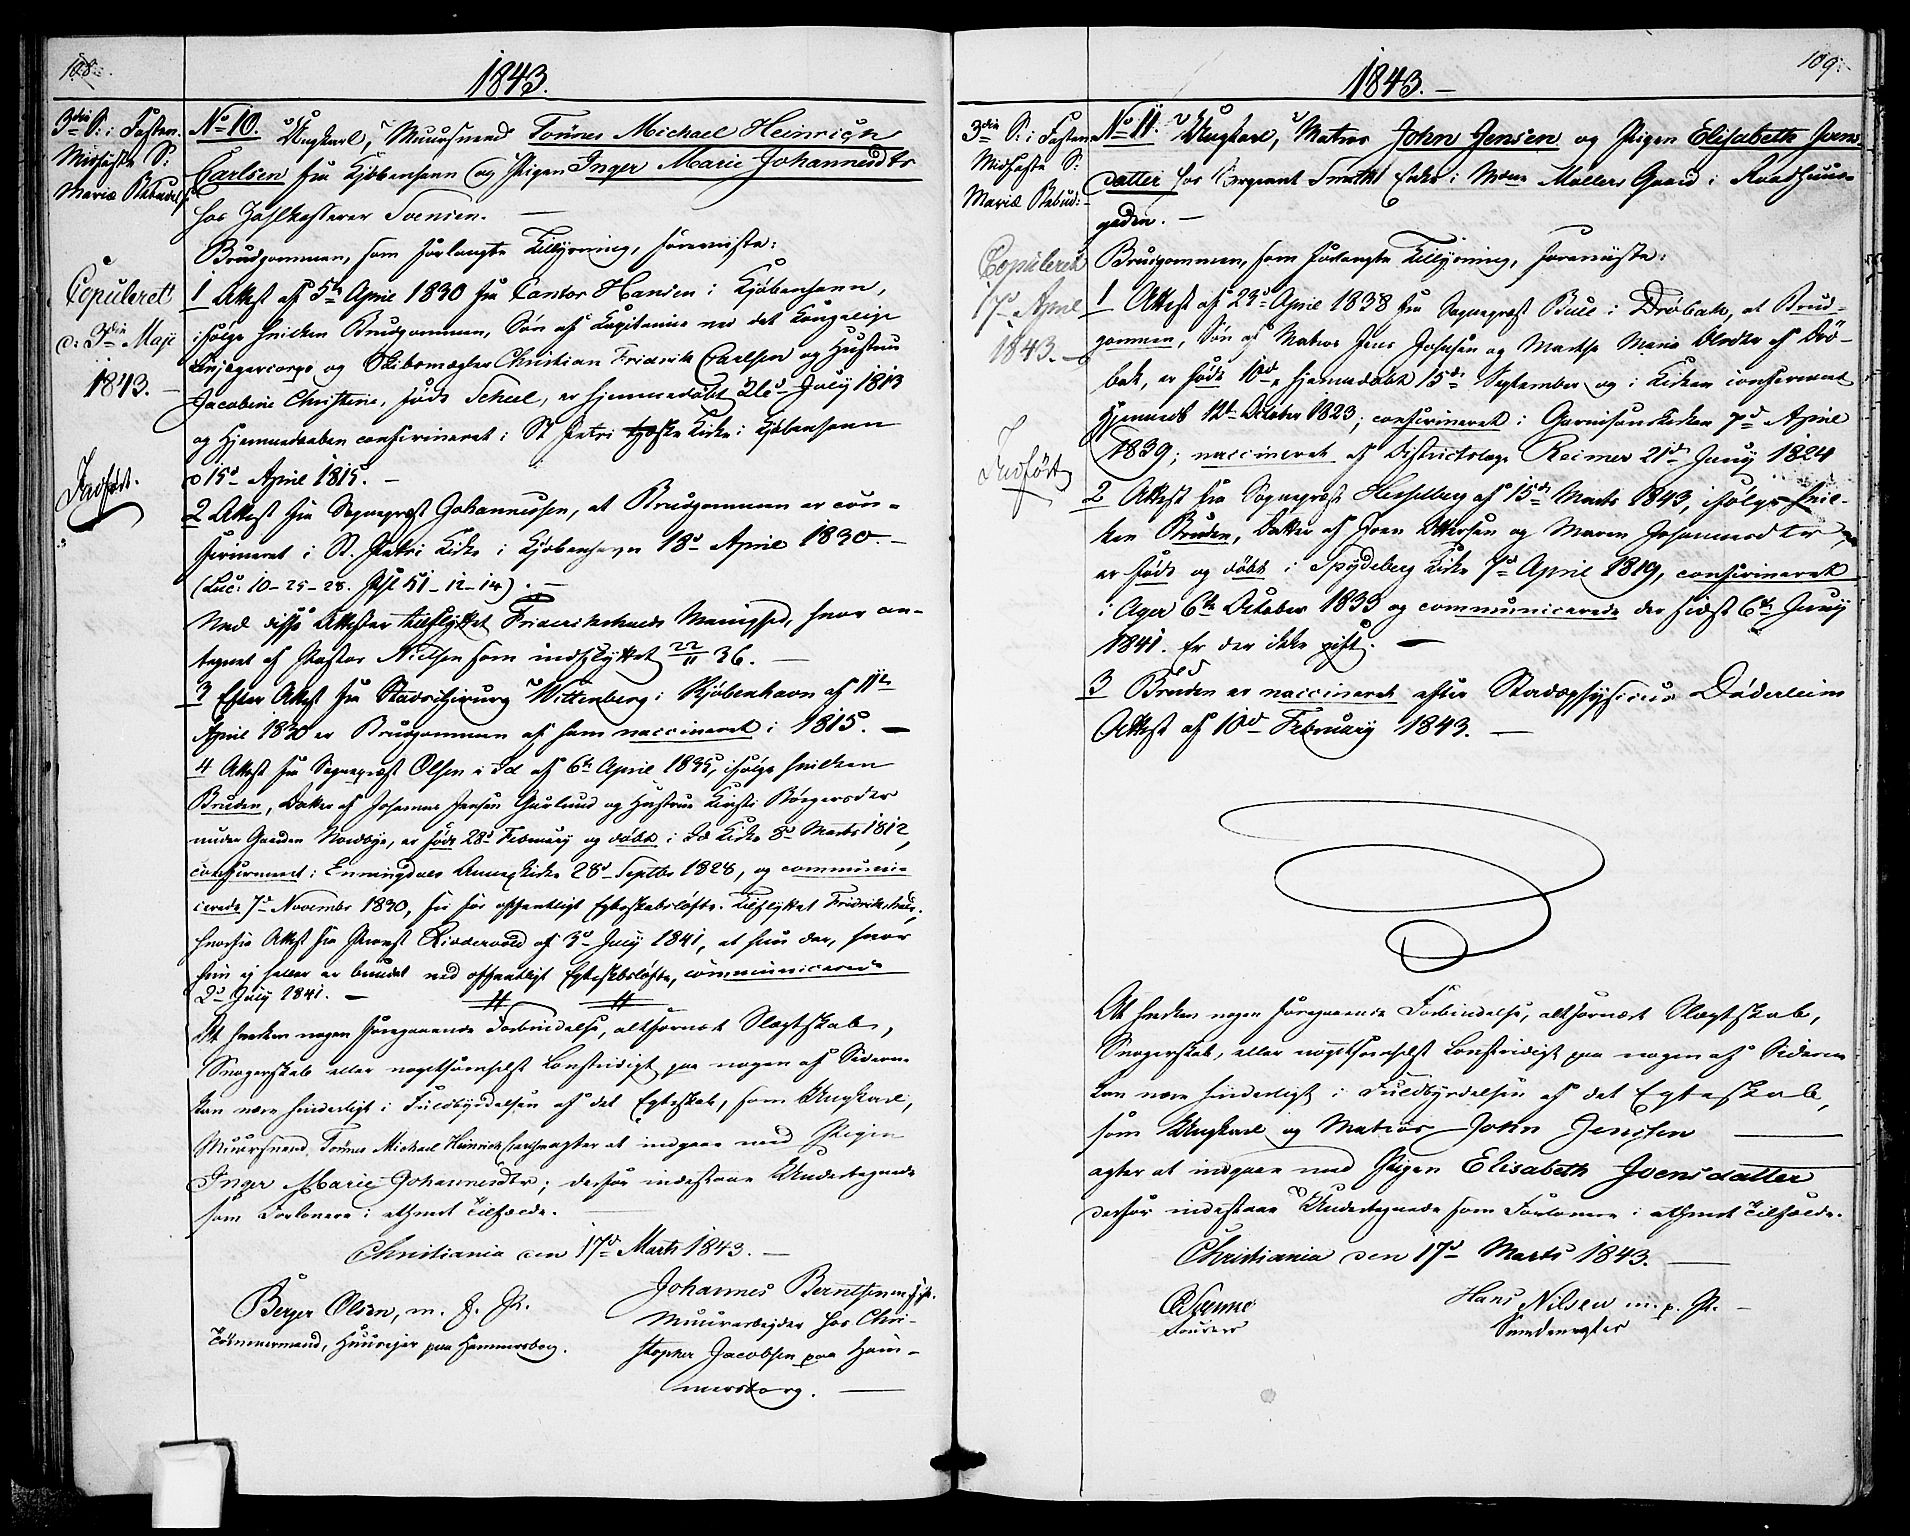 108.
1843.
3die S. i Fasten.
Midfaste S:
Mariæ Bebudelse
Copuleret
d. 3die Maji
1843. –
Indført.
No 10. Ungkarl, Muursvend Tönnes Michael Heinrich
Carlsen fra Kjøbenhavn og Pigen Inger Marie Johannesdtr
hos Zahlkasserer Svensen. –
Brudgommen, som forlangte Tillysning, foreviiste:
1 Attest af 5te April 1830 fra Cantor Hansen i Kjøbenhavn,
ifølge hvilken Brudgommen, Søn af Kapitaine ved det Kongelige
Livjægercorps og Skibsmægler Christian Friderik Carlsen og Hustru
Jacobine Christine, født Scheel, er hjemmedøbt 21de July 1813
og Hjemmedaaben confirmeret i St Petri tydske Kirke i Kjøbenhavn
d 15d April 1815. –
2 Attest fra Sognepræst Johannessen, at Brudgommen er con-
firmeret i St. Petri Kirke i Kjøbenhavn 18d April 1830. –
(Luc: 10-25-28. Psl 51-12-14). –
Med disse Attester tilflyttet Frideriksheds Menighed, hvor an-
tegnet af Pastor Nielsen som indflyttet 22/11 36. –
3 Efter Attest fra Stadschirurg Wittenberg i Kjøbenhavn af 11te
April 1830 er Brudgommen af ham vaccineret i 1815. –
4 Attest fra Sognepræst Olsen i Id af 6te April 1835, ifølge hvilken
Bruden, Datter af Johannes Jensen Gaulund og Hustrue Kirsti Børgersdtr
under Gaarden Nordbye, er født 28d February og døbt i Id Kirke 8d Marts 1812,
confirmeret i Enningdals Annexkirke 28d Septbr 1828, og communi-
cerede 7d November 1830, fri for offentligt Egteskabsløfte. Tilflyttet Fridrikshald,
hvorfra Attest fra Provst Riddervold af 3d July 1841, at hun der, hvor
hun ej heller er bundet ved offentligt Egteskabsløfte, communicerede
2d July 1841. –
At hverken nogen foregaaende Forbindelse, altfornært Slægtskab,
Svogerskab eller nogetsomhelst Lovstridigt paa nogen af Siderne
kan være hinderligt i Fuldbyrdelsen af det Egteskab, som Ungkarl,
Muursvend Tönnes Michael Heinrich Carlsen agter at indgaae med Pigen
Inger Marie Johannesdtr; derfor indestaae Undertegnede
som Forlovere i ethvert Tilfælde. –
Christiania den 17d Marts 1843. –
Berger Olsen, m. f. P.
Tömmermand, Huusejer paa Hammersborg.
Johannes Berntsen m. f. P.
Muurarbejder hos Chri-
stopher Jacobsen paa Ham-
mersborg. –
109.
1843. –
3die S. i Fasten
Midfaste S:
Mariæ Bebud:
Copuleret
17d April
1843. –
Indført
No 11. Ungkarl, Matros John Jensen og Pigen Elisabeth Joens
datter hos Sergeant Enke i Möllers Gaard i Raadhuus-
gaden. –
Brudgommen, som forlangte Tillysning, foreviiste:
1 Attest af 23d April 1838 fra Sognepræst Bull i Drøbak, at Brud-
gommen, Søn af Matros Jens Johnsen og Marthe Marie Olsdtr af Drø-
bak, er født 10d, hjemmedøbt 15d September og i Kirken confirmeret
Hjemmed: 12d October 1823; confirmeret i Garnisonskirken 7d April
1839; vaccineret af Districtslæge Reimer 21d Juny 1824
2 Attest fra Sognepræst Hesselberg af 15d Marts 1843, ifølge hvil-
ken Bruden, Datter af Joen Ottersen og Maren Johannesdtr
er født og døbt i Spydeberg Kirke 7d April 1819, confirmeret
i Ager 6te October 1833 og communicerede der sidst 6te Juny
1841. Er der ikke gift. –
3 Bruden er vaccineret efter Stadsphysicus Döderleins
Attest af 10d February 1843. –
At hverken nogen foregaaende Forbindelse, altfornært Slægtskab,
Svogerskab, eller nogetsomhelst Lovstridigt paa nogen af Siderne
kan være hinderligt i Fuldbyrdelsen af det Egteskab,
som Ungkarl og Matros John Jensen
agter at indgaae med Pigen Elisabeth Joensdatter
derfor indestaae Undertegnede som Forlovere i ethvert Tilfælde.
Christiania den 17d Marts 1843. –
Hans Nilsen m. p. P. –